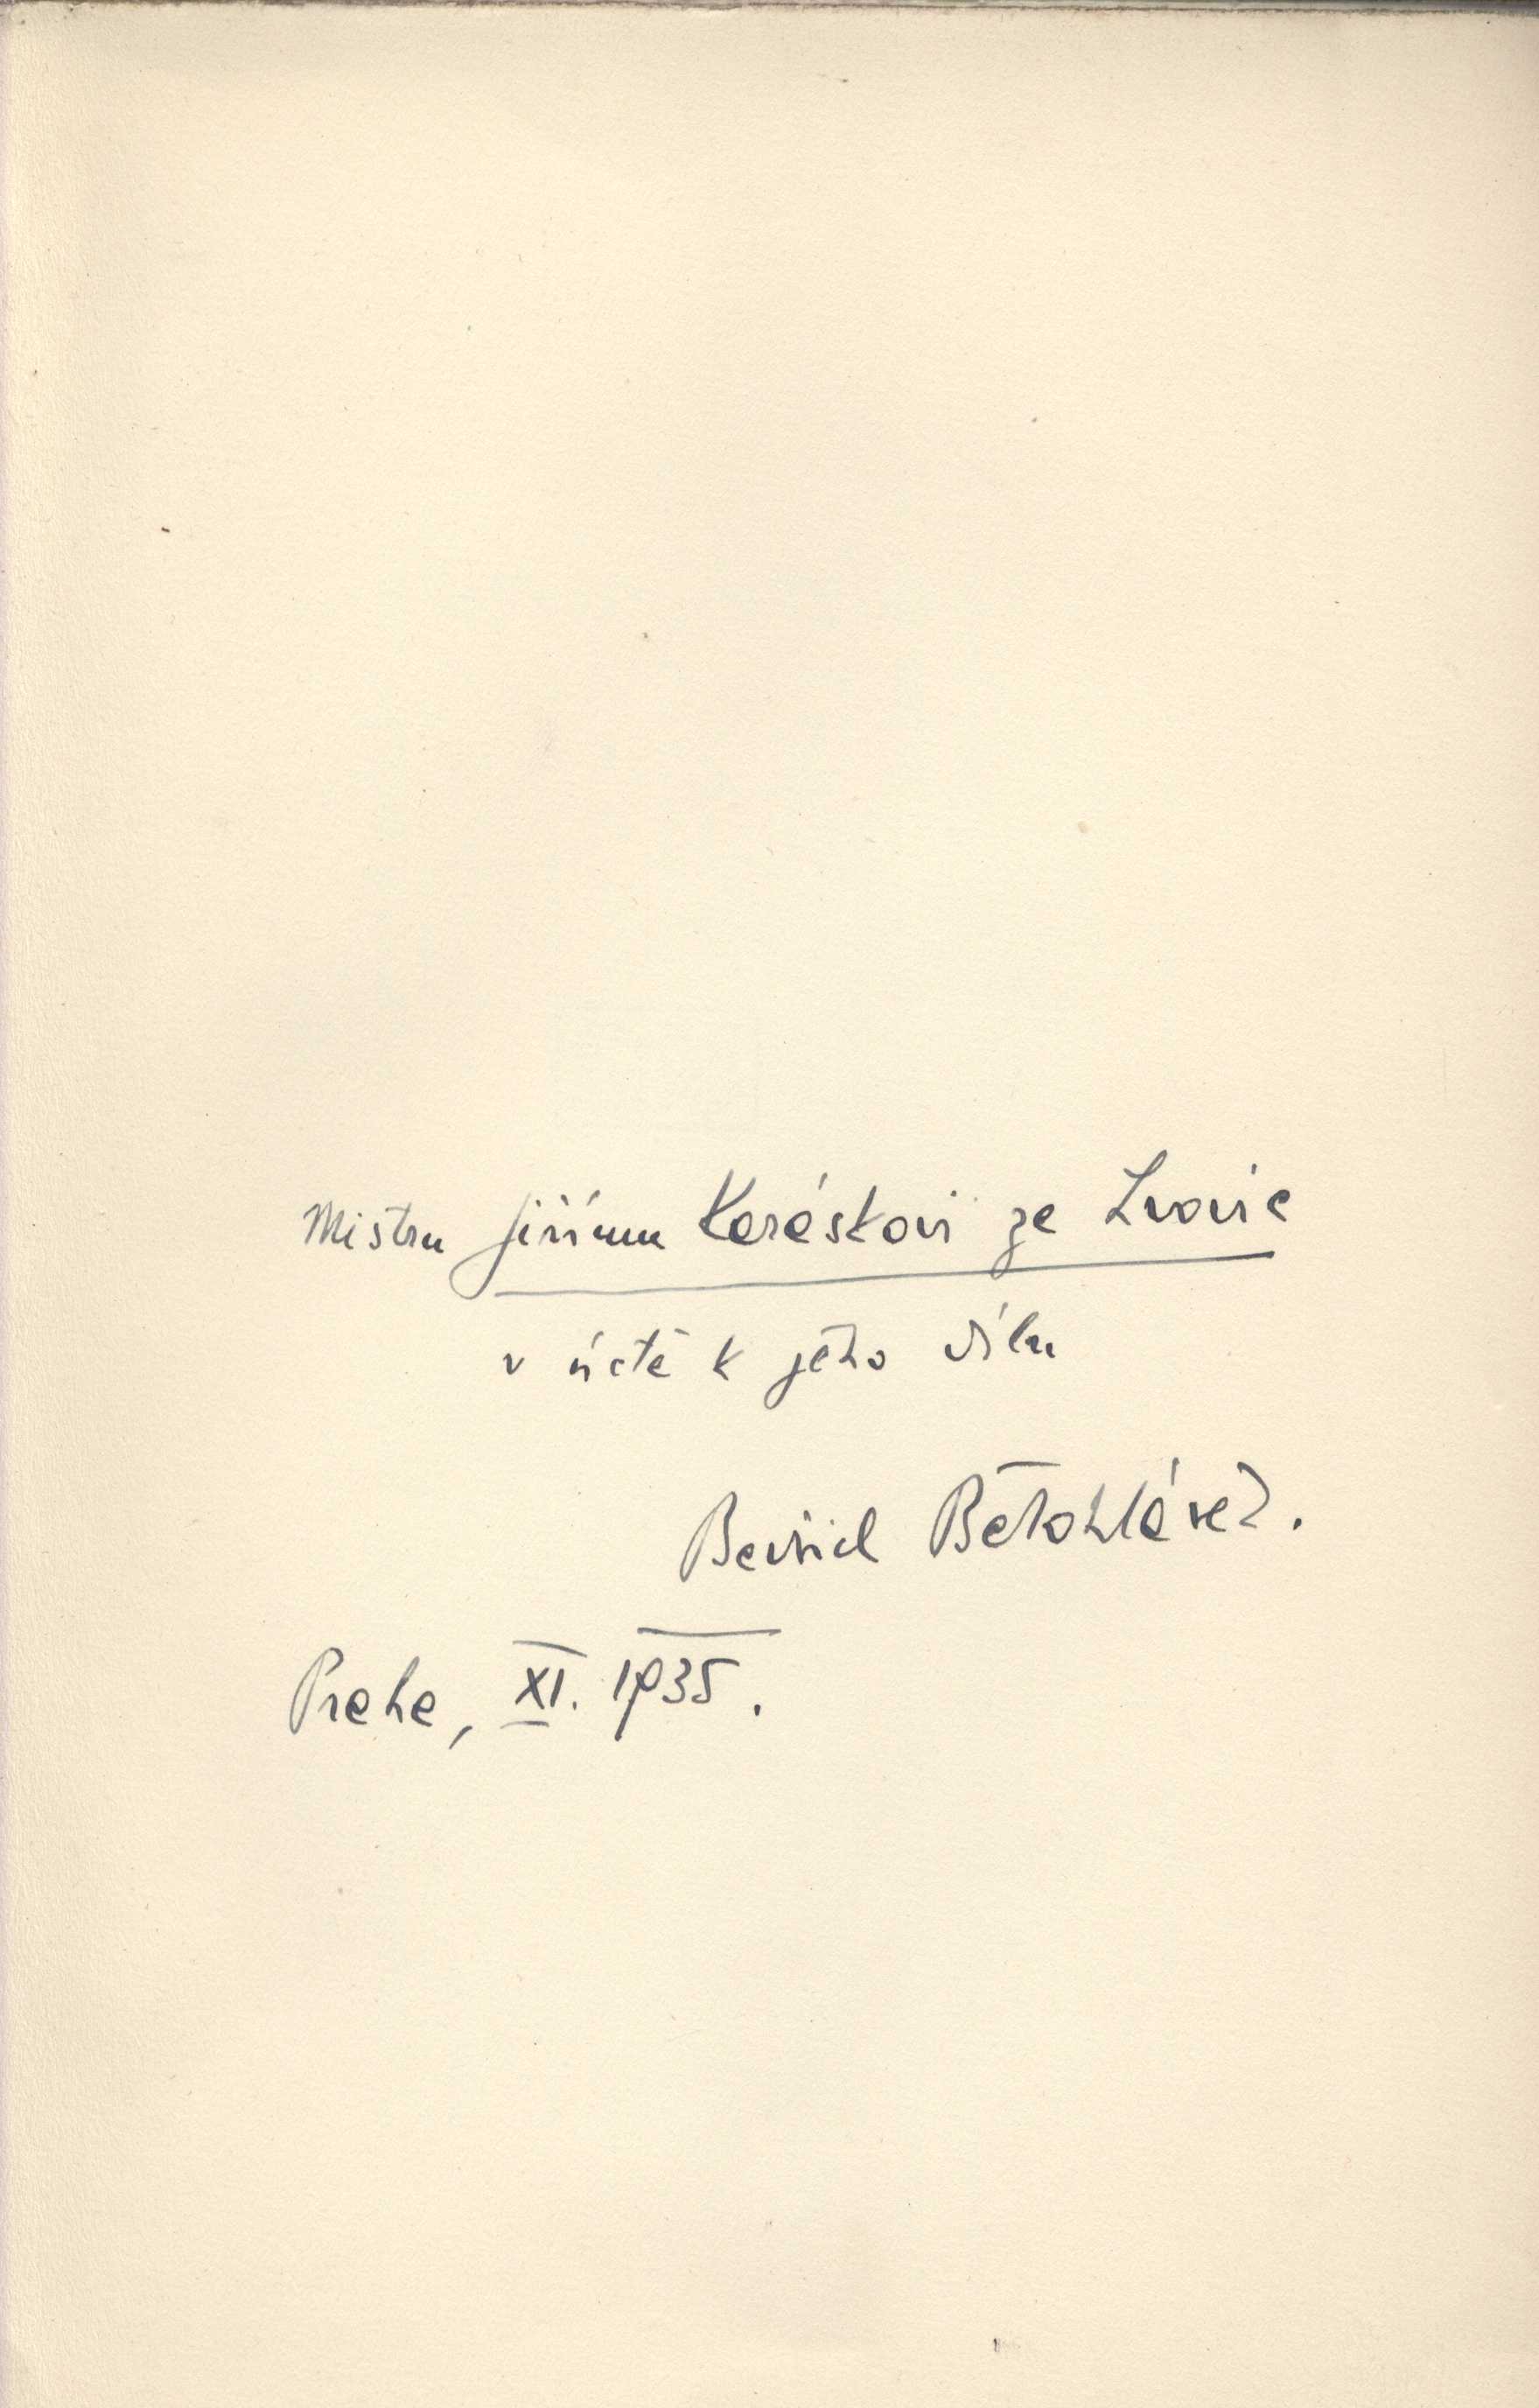 Mistru Jiřímu Karáskovi ze Lvovic
v úctě k jeho dílu
Bedřich Bělohlávek.
Praha, XI. 1935.